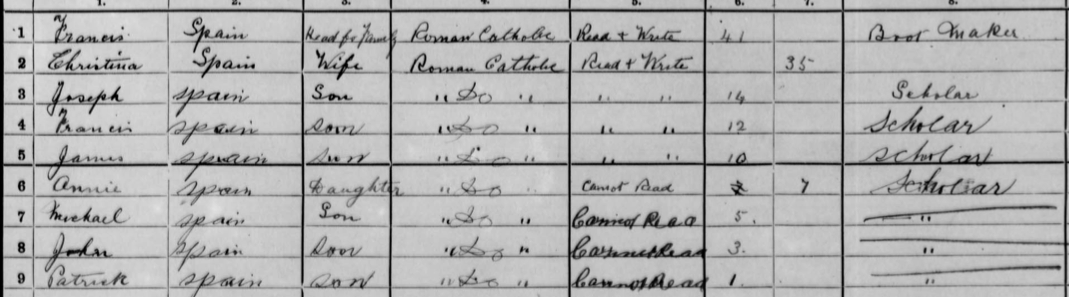 1. 2. 3. 4. 5. 6. 7. 8.
1 Francis Spain Head of Family Roman Catholic Read + Write 41 Boot Maker
2 Christina Spain Wife Roman Catholic Read + Write 35
3 Joseph Spain Son " Do " " " 14 Scholar
4 Francis Spain Son " Do " " " 12 Scholar
5 James Spain Son " Do " " " 10 Scholar
6 Annie Spain Daughter " Do " Cannot Read 7 Scholar
7 Michael Spain Son " Do " Cannot Read 5. "
8 John Spain Son " Do " Cannot Read 3. "
9 Patrick Spain Son " Do " Cannot Read 1. "